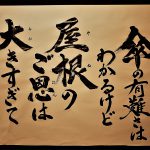 傘の有難さは
わかるけど
屋根の
ご恩は
大きすぎて